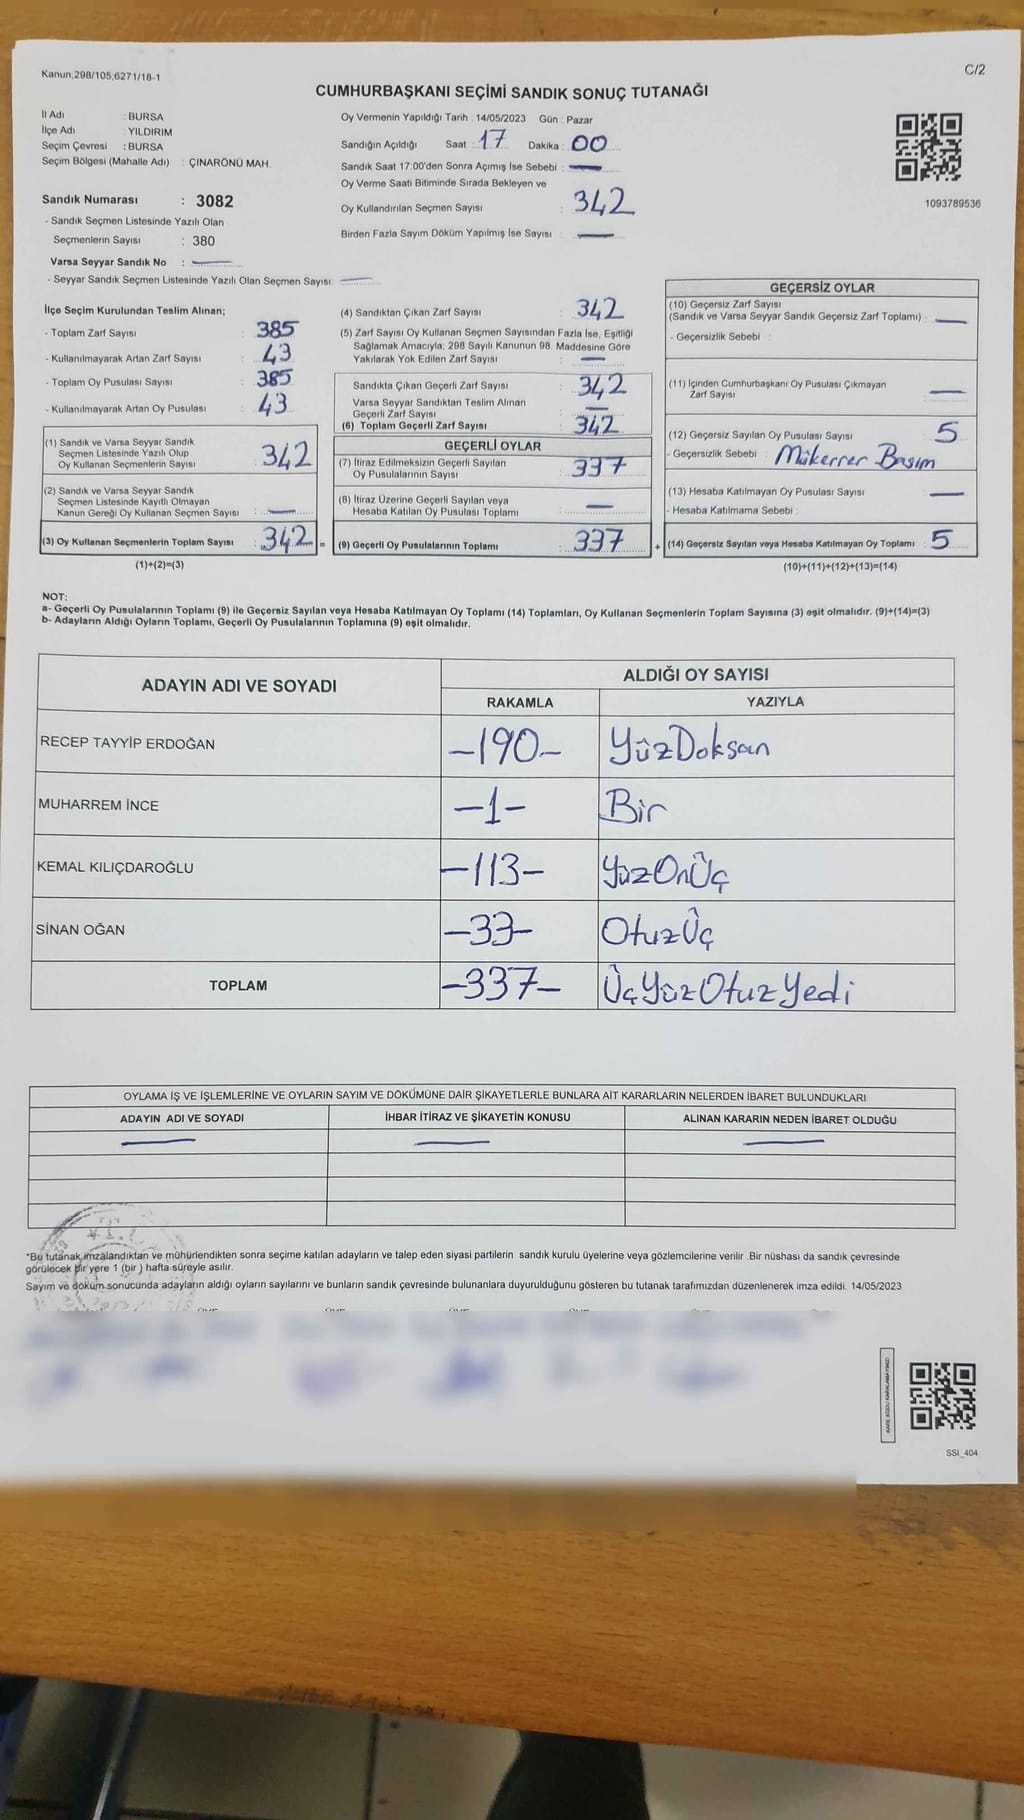 Kanun,298/105;6271/18-1
C/2
CUMHURBAŞKANI SEÇİMİ SANDIK SONUÇ TUTANAĞI
İl Adı : BURSA
İlçe Adı : YILDIRIM
Seçim Çevresi : BURSA
Seçim Bölgesi (Mahalle Adı) : ÇINARÖNÜ MAH.
Sandık Numarası : 3082
- Sandık Seçmen Listesinde Yazılı Olan
Seçmenlerin Sayısı : 380
Varsa Seyyar Sandık No :
- Seyyar Sandık Seçmen Listesinde Yazılı Olan Seçmen Sayısı:
Oy Vermenin Yapıldığı Tarih : 14/05/2023 Gün : Pazar
Sandığın Açıldığı Saat : 17 Dakika : 00
Sandık Saat 17:00'den Sonra Açımış İse Sebebi :
Oy Verme Saati Bitiminde Sırada Bekleyen ve
Oy Kullandırılan Seçmen Sayısı : 342
Birden Fazla Sayım Döküm Yapılmış İse Sayısı :
1093789536
İlçe Seçim Kurulundan Teslim Alınan;
- Toplam Zarf Sayısı : 385
- Kullanılmayarak Artan Zarf Sayısı : 43
- Toplam Oy Pusulası Sayısı : 385
- Kullanılmayarak Artan Oy Pusulası : 43
(1) Sandık ve Varsa Seyyar Sandık
Seçmen Listesinde Yazılı Olup
Oy Kullanan Seçmenlerin Sayısı : 342
(2) Sandık ve Varsa Seyyar Sandık
Seçmen Listesinde Kayıtlı Olmayan
Kanun Gereği Oy Kullanan Seçmen Sayısı :
(3) Oy Kullanan Seçmenlerin Toplam Sayısı : 342 =
(1)+(2)=(3)
(4) Sandıktan Çıkan Zarf Sayısı : 342
(5) Zarf Sayısı Oy Kullanan Seçmen Sayısından Fazla İse, Eşitliği
Sağlamak Amacıyla; 298 Sayılı Kanunun 98. Maddesine Göre
Yakılarak Yok Edilen Zarf Sayısı :
Sandıkta Çıkan Geçerli Zarf Sayısı : 342
Varsa Seyyar Sandıktan Teslim Alınan
Geçerli Zarf Sayısı :
(6) Toplam Geçerli Zarf Sayısı : 342
GEÇERLİ OYLAR
(7) İtiraz Edilmeksizin Geçerli Sayılan
Oy Pusulalarının Sayısı : 337
(8) İtiraz Üzerine Geçerli Sayılan veya
Hesaba Katılan Oy Pusulası Toplamı :
(9) Geçerli Oy Pusulalarının Toplamı : 337 +
GEÇERSİZ OYLAR
(10) Geçersiz Zarf Sayısı
(Sandık ve Varsa Seyyar Sandık Geçersiz Zarf Toplamı) :
- Geçersizlik Sebebi :
(11) İçinden Cumhurbaşkanı Oy Pusulası Çıkmayan
Zarf Sayısı :
(12) Geçersiz Sayılan Oy Pusulası Sayısı : 5
- Geçersizlik Sebebi : Mükerrer Basım
(13) Hesaba Katılmayan Oy Pusulası Sayısı :
- Hesaba Katılmama Sebebi :
(14) Geçersiz Sayılan veya Hesaba Katılmayan Oy Toplamı : 5
(10)+(11)+(12)+(13)=(14)
NOT:
a- Geçerli Oy Pusulalarının Toplamı (9) ile Geçersiz Sayılan veya Hesaba Katılmayan Oy Toplamı (14) Toplamları, Oy Kullanan Seçmenlerin Toplam Sayısına (3) eşit olmalıdır. (9)+(14)=(3)
b- Adayların Aldığı Oyların Toplamı, Geçerli Oy Pusulalarının Toplamına (9) eşit olmalıdır.
ADAYIN ADI VE SOYADI ALDIĞI OY SAYISI
RAKAMLA YAZIYLA
RECEP TAYYİP ERDOĞAN -190- YüzDoksan
MUHARREM İNCE -1- Bir
KEMAL KILIÇDAROĞLU -113- YüzOnÜç
SİNAN OĞAN -33- OtuzÜç
TOPLAM -337- ÜçYüzOtuzYedi
OYLAMA İŞ VE İŞLEMLERİNE VE OYLARIN SAYIM VE DÖKÜMÜNE DAİR ŞİKAYETLERLE BUNLARA AİT KARARLARIN NELERDEN İBARET BULUNDUKLARI
ADAYIN ADI VE SOYADI İHBAR İTİRAZ VE ŞİKAYETİN KONUSU ALINAN KARARIN NEDEN İBARET OLDUĞU
*Bu tutanak imzalandıktan ve mühürlendikten sonra seçime katılan adayların ve talep eden siyasi partilerin sandık kurulu üyelerine veya gözlemcilerine verilir .Bir nüshası da sandık çevresinde
görülecek bir yere 1 (bir) hafta süreyle asılır.
Sayım ve döküm sonucunda adayların aldığı oyların sayılarını ve bunların sandık çevresinde bulunanlara duyurulduğunu gösteren bu tutanak tarafımızdan düzenlenerek imza edildi. 14/05/2023
KARE KODU KARALAMAYINIZ!
SSI_404